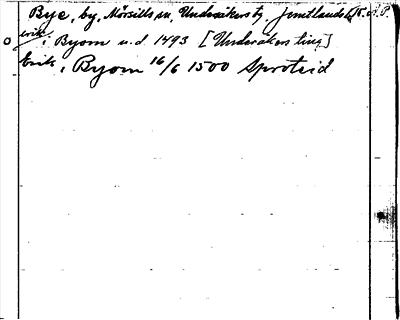 Bye, by, Mörsills sn, Undersåkers tg Jämtlands l.
Erik i Byom u.d. 1493 [Undersåkers ting]
Erik i Byom 16/6 1500